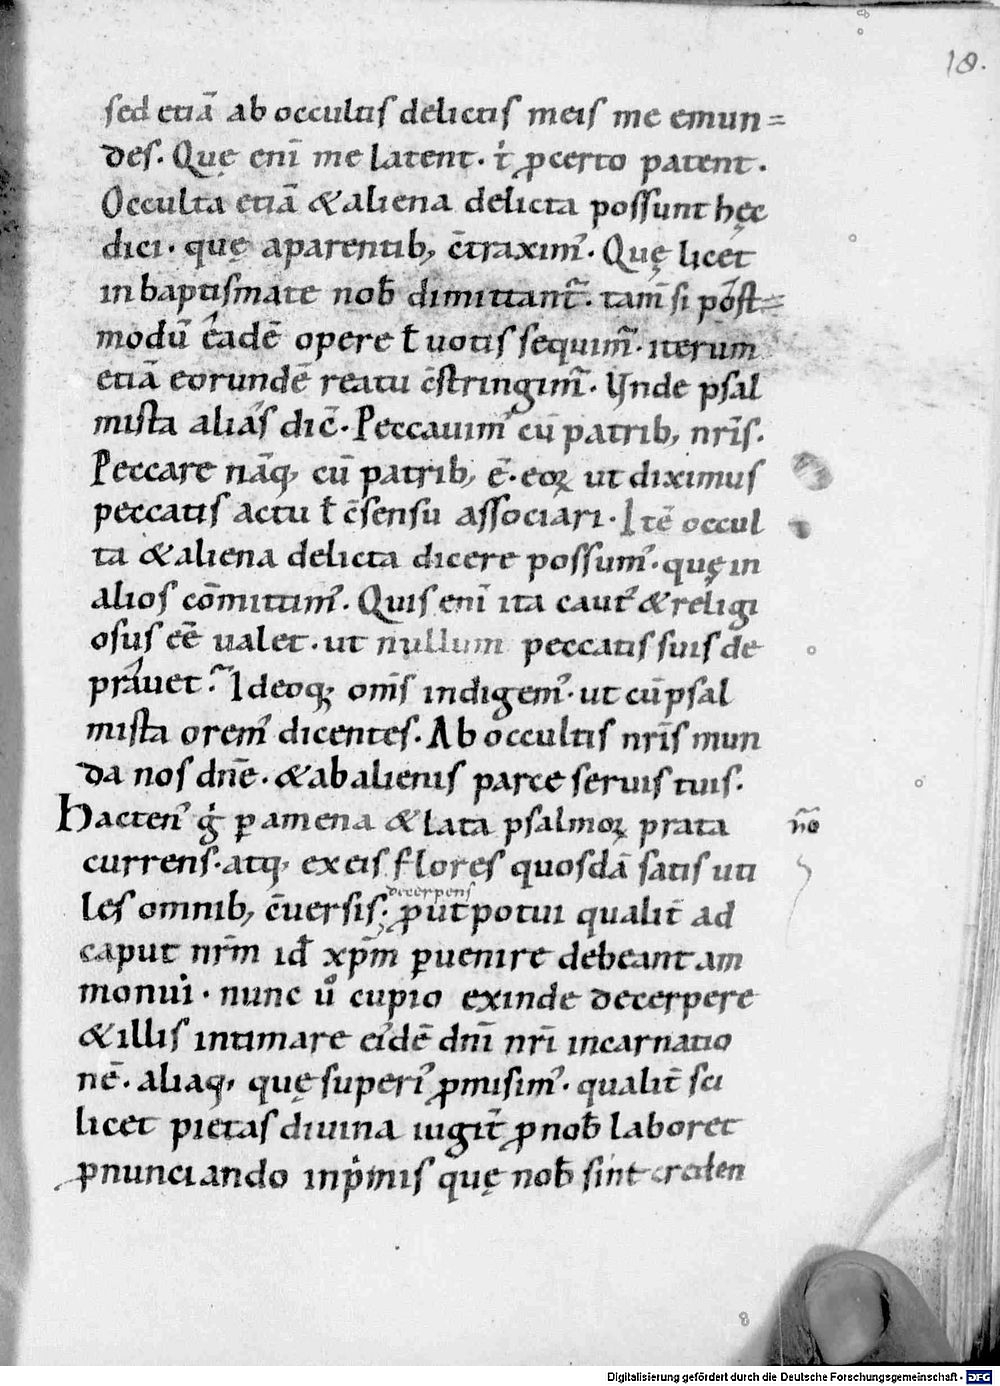 18.
sed etiā ab occultis delictis meis me emun=
des. Quę enī me latent. t̉ ꝓcerto patent.
Occulta etiā & aliena delicta possunt hęc
dici. quę aparentib; c̄traxim᾽. Quę licet
in baptismate nob̄ dimittant᷑. tam̄ si post=
modū eadē opere ł uotis sequim᷑. iterum
etiā eorundē reatu c̄stringim᷑. Vnde psal
mista alias dic̄. Peccauim᾽ cū patrib; nr̄is.
Peccare nāq; cū patrib; ē. eoꝝ ut diximus
peccatis actu ł c̄sensu associari. Itē occul
ta & aliena delicta dicere possum᾽. quę in
alios cōmittim᾽. Quis enī ita caut᾽ & religi
osus eē ualet. ut nullum peccatis suis de
prauet? Ideoq; om̄s indigem᾽. ut cū psal
mista orem᾽ dicentes. Ab occultis nr̄is mun
da nos dn̄e. & ab alienis parce seruis tuis.
Hacten᾽ g̊ ꝑ amena & lata psalmoꝝ prata
n̄o
currens. atq; ex eis flores quosdā satis uti
decerpens
les omnib; c̄uersis; ꝓut potui qualit̄ ad
caput nr̄m id ̄ xp̄m ꝑuenire debeant am
monui. nunc ů cupio exinde decerpere
& illis intimare ei᾽dē dn̄i nr̄i incarnatio
nē. aliaq; quę superi᾽ ꝓmisim᾽. qualit̄ sci
licet pietas diuina iugit̄ ꝓ nob̄ laboret
ꝓnunciando inp̄mis quę nob̄ sint creden
8
Digitalisierung gefördert durch die Deutsche Forschungsgemeinschaft - DFG